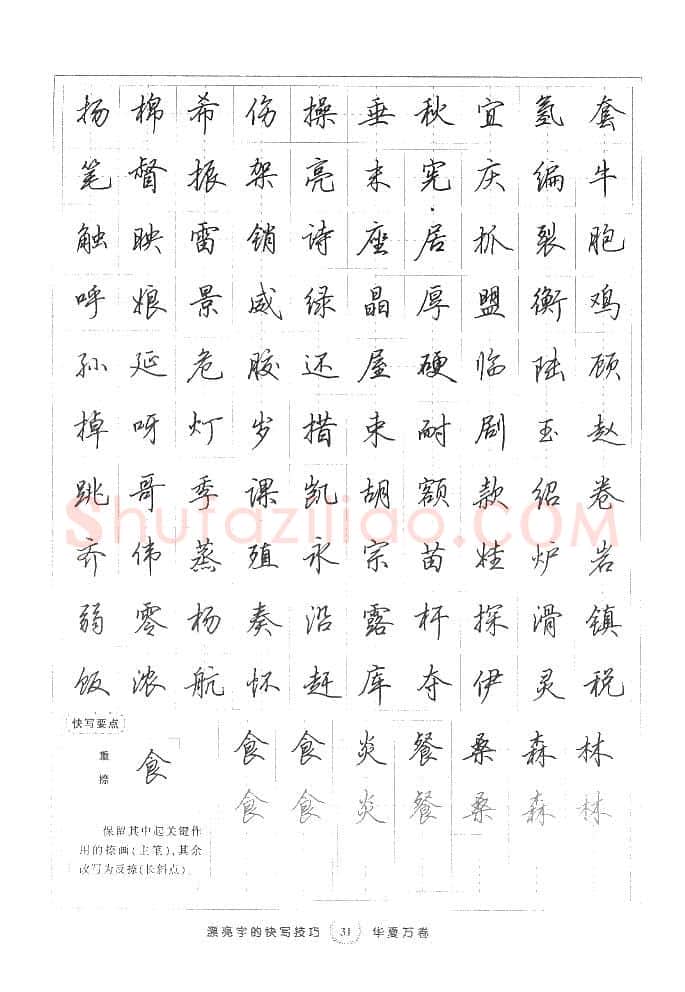 扬 棉 希 伤 操 垂 秋 宜 氢 套
笔 督 振 架 亮 末 宪 庆 编 牛
触 映 雷 销 诗 座 居 抓 裂 胞
呼 娘 景 威 绿 晶 厚 盟 衡 鸡
孙 延 危 胶 还 屋 硬 临 陆 顾
掉 呀 灯 岁 措 束 耐 剧 玉 赵
跳 哥 季 课 凯 胡 额 款 绍 卷
齐 伟 蒸 殖 永 宗 苗 炉 岩
弱 零 杨 奏 沿 露 杆 探 滑 镇
饭 浓 航 怀 赶 库 夺 伊 灵 税
快写要点
重捺
食
食 食 炎 餐 桑 森 林
食 食 炎 餐 桑 森 林
保留其中起关键作
用的捺画(主笔),其余
改写为反捺(长斜点)
漂亮字的快写技巧 31 华夏万卷
Shufaziliao.COM